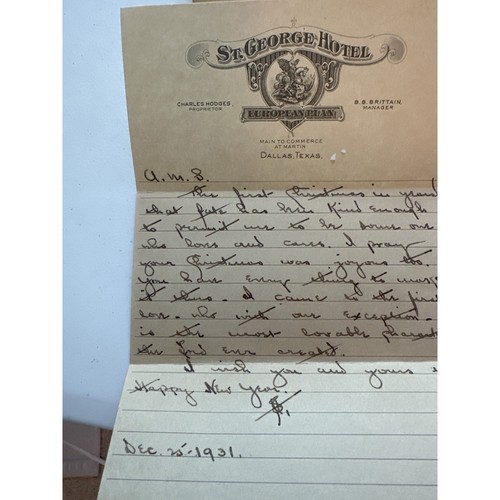 ST. GEORGE HOTEL
EUROPEAN PLAN
CHARLES HODGES,
PROPRIETOR
B.B. BRITTAIN,
MANAGER
MAIN TO COMMERCE
AT MARTIN
DALLAS, TEXAS.
A.M.S.
The first Christmas in years
that fate has been kind enough
to permit me to be some one
who loves and cares. I pray
your Christmas was joyous too.
You have every thing to
it thus. I came to the first
love. who with one exception.
is the most lovable
the Lord ever created.
I wish you and yours a
Happy New Year.
Dec. 25-1931.